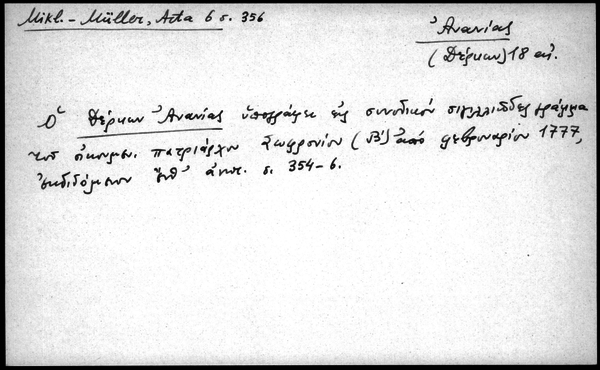 Mikl.-Müller, Acta 6 σ. 356
Ἀνανίας
(Δέρκων) 18 αἰ.
Ὁ Δέρκων Ἀνανίας ὑπογράφει εἰς συνοδικόν σιγιλλιῶδες γράμμα
τοῦ οἰκουμεν. πατριάρχου Σωφρονίου (Β') ἀπό φεβρουαρίου 1777,
ἐκδιδόμενον ἀνωτ. σ. 354-6.